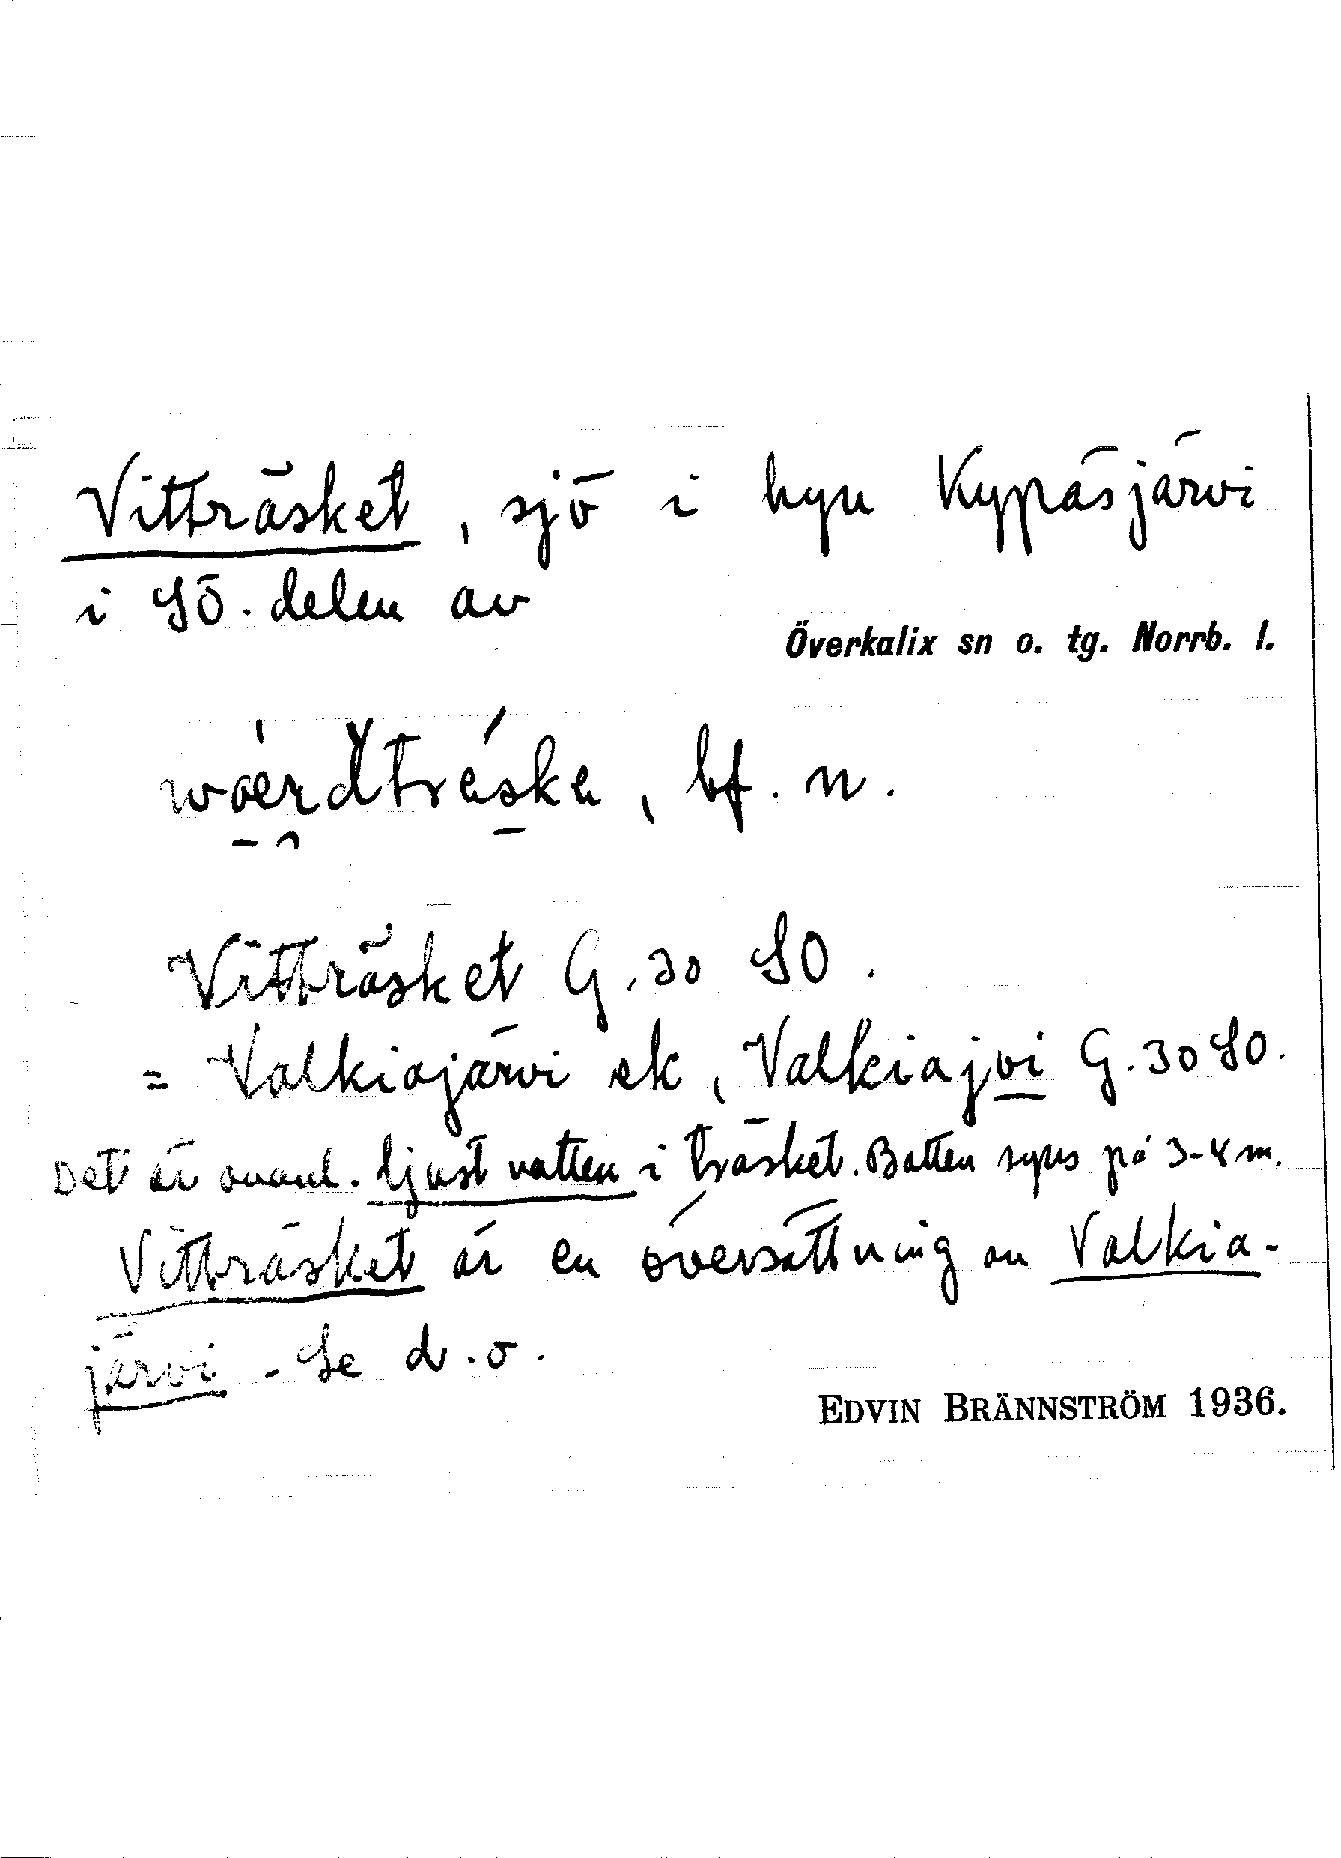 Vitträsket, sjö i byn Kypäsjärvi
i SÖ. delen av
Överkalix sn o. tg. Norrb. l.
bf. n.
Vitträsket G. 30 SO.
= Valkiajärvi ek, Valkiajvi G. 30 SO.
Det är ovanl. ljust vatten i träsket. Botten syns på 3-4 m.
Vitträsket är en översättning av Valkia-
järvi - Se d. o.
EDVIN BRÄNNSTRÖM 1936.